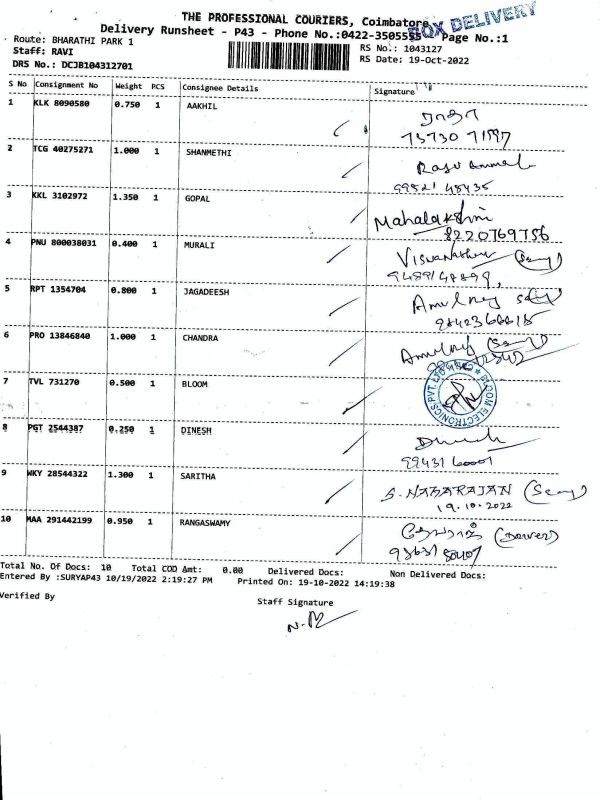 THE PROFESSIONAL COURIERS, Coimbatore
BOX DELIVERY
Delivery Runsheet - P43 - Phone No.:0422-3505555 Page No.:1
Route: BHARATHI PARK 1
RS No.: 1043127
Staff: RAVI
RS Date: 19-Oct-2022
DRS No.: DCJB104312701
S No Consignment No Weight PCS Consignee Details Signature
1 KLK 8090580 0.750 1 AAKHIL
ராதா
2 TCG 40275271 1.000 1 SHANMETHI
3 KKL 3102972 1.350 1 GOPAL
Mahalakshmi
8220769756
4 PNU 800038031 0.400 1 MURALI
5 RPT 1354704 0.800 1 JAGADEESH
6 PRO 13846840 1.000 1 CHANDRA
7 TVL 731270 0.500 1 BLOOM
BLOOM ELECTRONICS PVT. LTD
8 PGT 2544387 0.250 1 DINESH
Dinesh
9 WKY 28544322 1.300 1 SARITHA
S. NATARAJAN
19.10.2022
10 MAA 291442199 0.950 1 RANGASWAMY
Total No. Of Docs: 10 Total COD Amt: 0.00 Delivered Docs: Non Delivered Docs:
Entered By :SURYAP43 10/19/2022 2:19:27 PM Printed On: 19-10-2022 14:19:38
Verified By
Staff Signature